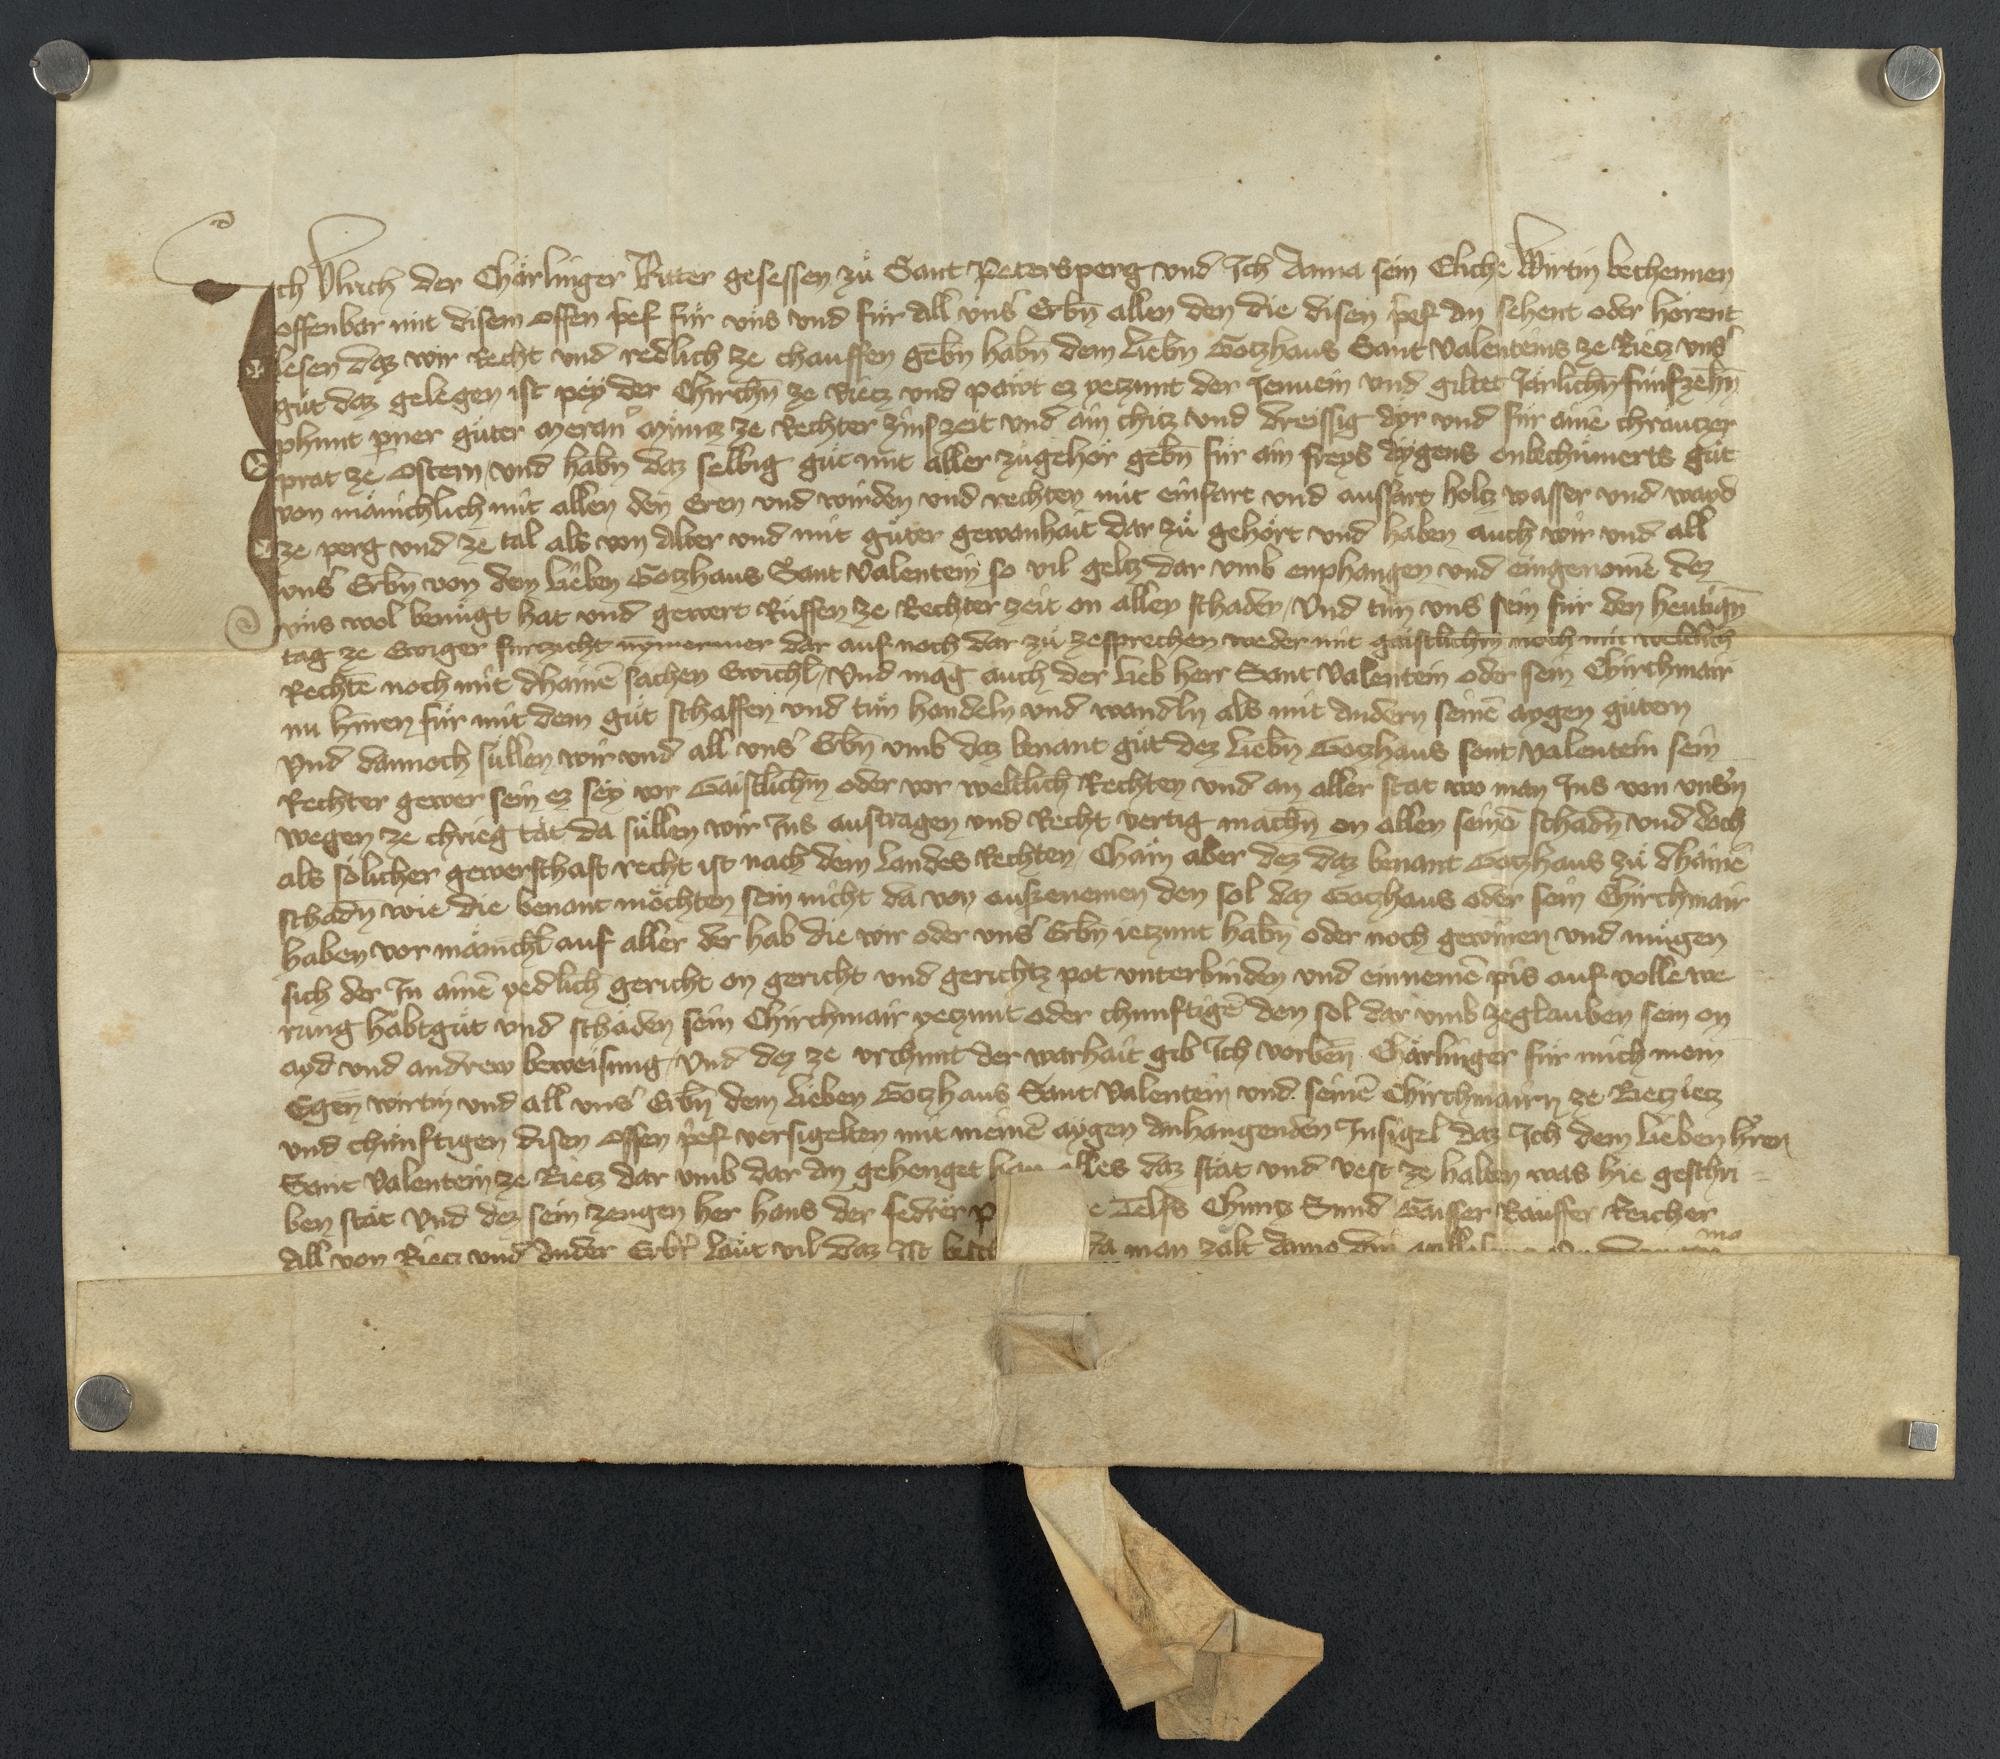 Ich Vlrich der Chärlinger Ritter gesessen zů Sant Petersperg vnd Ich Anna sein Eliche Wirtin bechennen
offenbar mit disem offen prief für vns vnd für all vns' Erbn̄ allen den die disen prief an sehent oder hörent
lesen daz wir Recht vnd redlich ze chauffen gebn̄ habn̄ dem liebn̄ Gotzhaus Sant Valenteins ze Rietz vns'
gůt daz gelegen ist pey der Chirchn̄ ze Rietz vnd pawt ez yetzunt der Jenuein vnd giltet Järlichn̄ fünfzehn̄
phunt p̄ner gůter Meran' Münts ze Rechter zinszeit vnd ain chitz vnd dreissig ayr vnd für ainē chrautzer
prat ze Ostern vnd habn̄ daz selbig gůt mit aller zůgehör gebn̄ für ain freys aygens vnbechümerts gůt
von mänichlich mit allen den Eren vnd wirden vnd rechten mit einfart vnd ausfart holtz wasser vnd wayd
ze perg vnd ze tal als von alter vnd mit gůter gewonhait dar zů gehört vnd haben auch wir vnd all
vns' Erbn̄ von dem lieben Gotzhaus Sant Valentein so vil geltz dar vmb enphangen vnd eingenomē dez
vns wol benůgt hat vnd gewert Rüffen ze Rechter zeit on allen schaden / Vnd tůn vns sein für den heutign̄
tag ze Ewiger fürzicht nymermer dar auf noch dar zů zesprechen weder mit gaistlichm̄ noch mit weltlich
Rechtē noch mit dhainē sachen Ewichl / Vnd mag auch der lieb herr Sant Valentein oder sein Chirchmair
nu hinnen für mit dem gůt schaffen vnd tůn handeln vnd wandln als mit andern seinē aygen gůtern
Vnd dannoch süllen wir vnd all vns' Erbn̄ vmb daz benant gůt dez liebn̄ Gotzhaus sant Valentein sein
Rechter gewer sein ez sey vor Gaistlichm̄ oder vor weltlich Rechten vnd an aller stat wo man Ins von vns'n
wegen ze chrieg tät da süllen wir Ins austragen vnd Recht vertig machn̄ on allen seinē schadn̄ vnd doch
als sölicher gewerschaft recht ist nach dem Landes Rechten / Chäm aber dez daz benant Gotzhaus zů dhainē
schadn̄ wie die benant möchten sein nicht da von auszenemen den sol daz Gotzhaus oder sein Chirchmair
haben vor mänichl auf aller der hab die wir oder vns' Erbn̄ ietzunt habn̄ oder noch gewinnen vnd mügen
sich der In ainē yedlich gericht on gericht vnd gerichtz pot vnterbinden vnd einnemē pis auf volle we
rung habtgůt vnd schäden sein Chirchmair yetzunt oder chunftigē den sol dar vmb zeglauben sein on
ayd vnd andrew beweisung / Vnd dez ze vrchunt der warhait gib Ich vorben̄ Chärlinger für mich mein
Egen̄ wirtin vnd all vns' Erbn̄ dem lieben Gotzhaus Sant Valentein vnd seinē Chirchmairn ze Rietz ietz
vnd chünftigen disen offen prief versigelten mit meinē aygen anhangenden Insigel daz Ich dem lieben h'ren
Sant Valentein ze Rietz dar vmb dar an gehenget han alles daz stät vnd vest ze halten was hie geschri
ben stät Vnd dez sein zeugen her hans der p e Telfs Chuntz Gaisser Räuffer Reicher
All von Rietz vnd ander Erb'r läut vil daz Ist da man zalt Anno dm̄